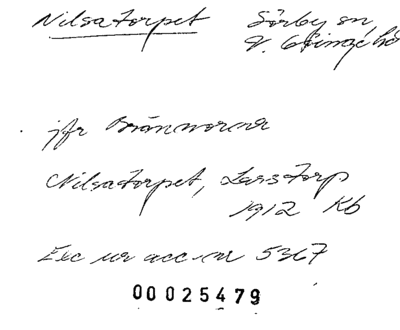 Nilsatorpet Sörby sn,
V. Göinge hd
jfr Brännorna
Nilsatorpet, Larstorp
1912 Kb
Exc ur acc. nr 5367
00025479